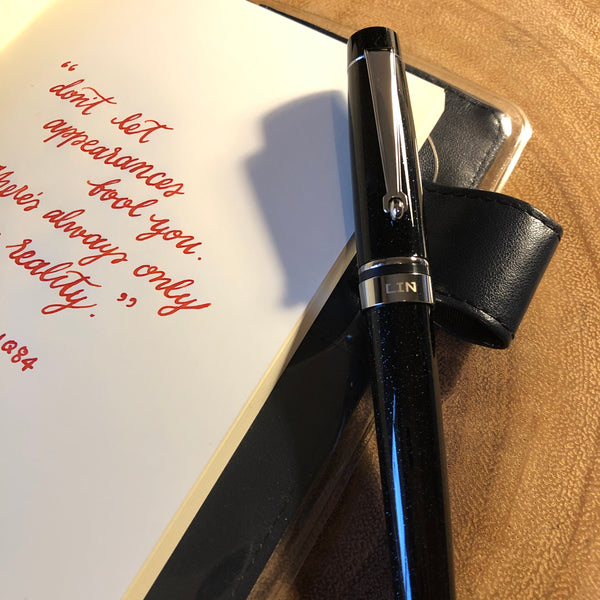 “
don't let
appearances
fool you.
there's always only
reality.”
Q84
LIN